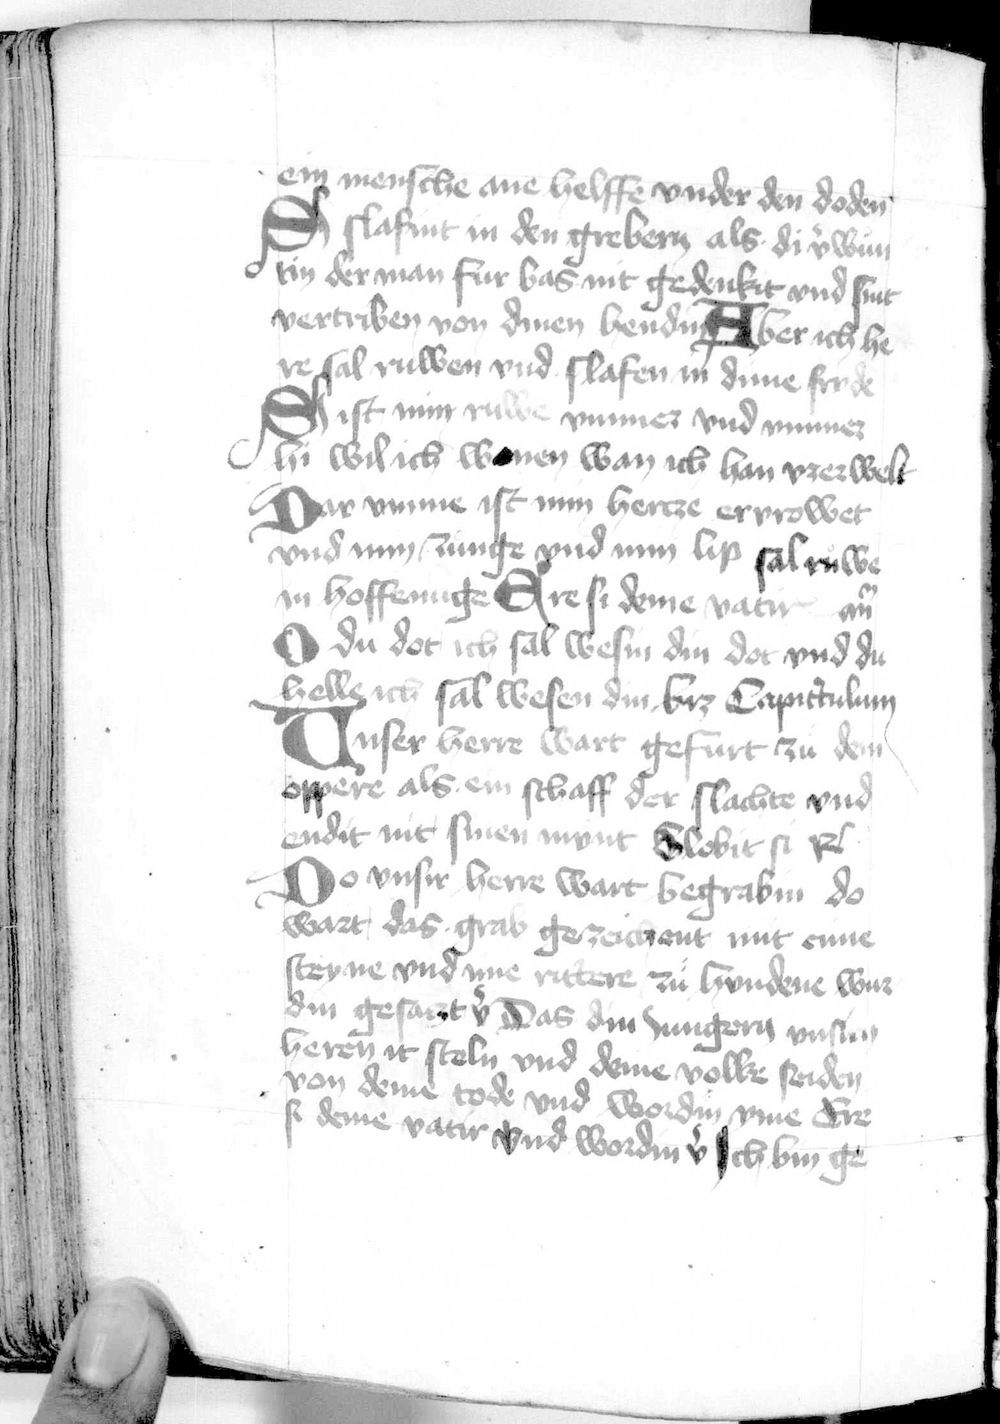 ein mensche ane helffe vnder den doden
Si slafint in den grebern als di v̉wun
tin der man fur bas nit gedenkit vnd sint
vertriben von dinen hendin Aber ich he
re sal ruwen vnd slafen in dime frede
Si ist min ruwe ymmer vnd ymmer
hi wil ich wonen wan ich han vzerwelt
Dar vmme ist min hertze ervrowet
vnd min zunge vnd min lip sal ruwe
in hoffenuge Ere si deme vatir an̄
O du dot ich sal wesin din dot vnd du
helle ich sal wesen din biz Capittulum
Vnser herre wart gefurt zu dem
oppere als ein schaff der slachte vnd
endit nit sinen mvnt Globit si R
Do vnsir herre wart begrabin do
wart das grab gezeichent mit eime
steyne vnd die rittere zu hvndene wur
din gesatzt v̉ Das din Jungern vnsirn
heren it steln vnd deme volke seiden
von deme tode vnd wordin vme Ere
si deme vatir vnd wordin v̉ Ich bin ge